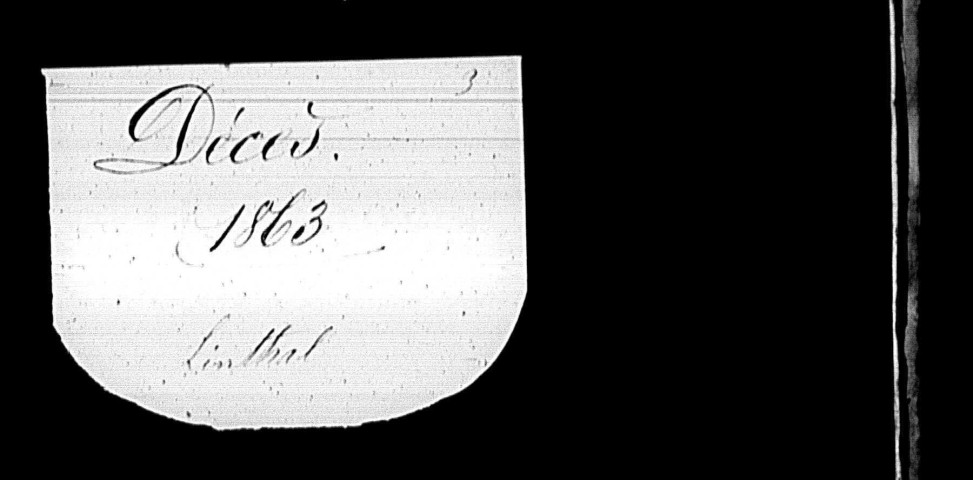 3
Décès.
1863
Linthal